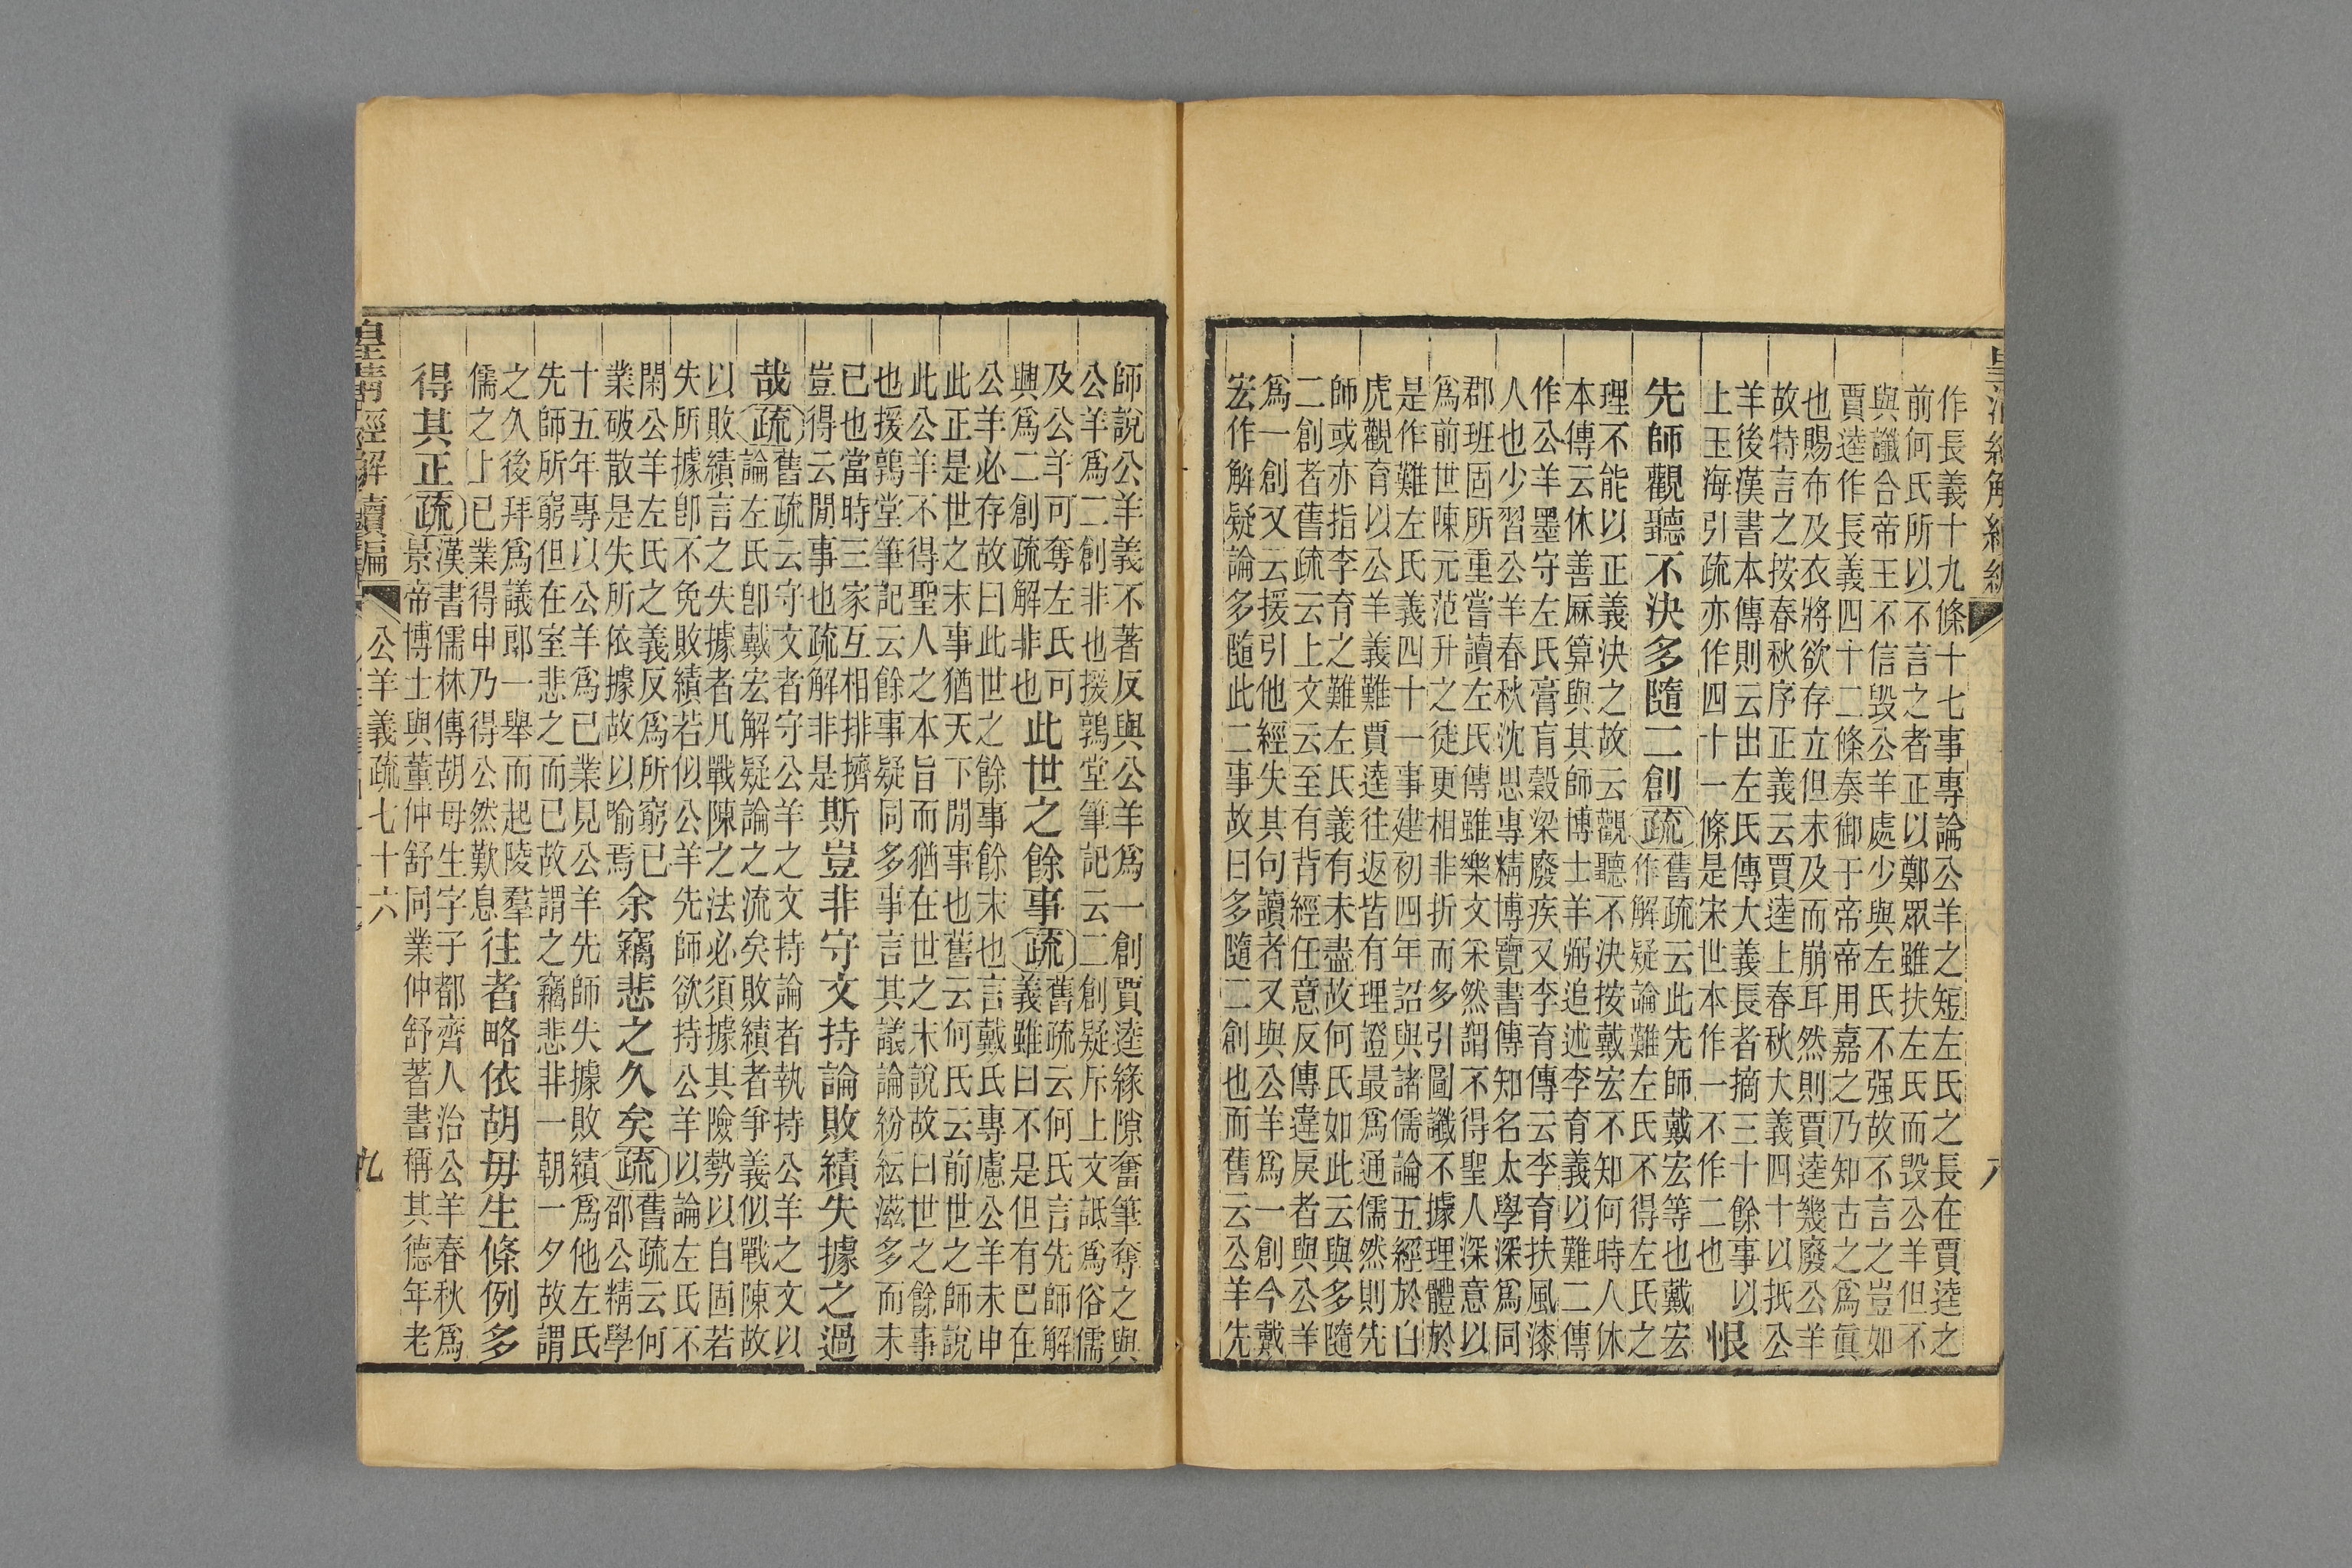 作長義十九條十七事專論公羊之短左氏之長在賈逵之
前何氏所以不言之者正以鄭眾雖扶左氏而毀公羊但不
與讖合帝王不信毀公羊處少與左氏不强故不言之豈如
賈逵作長義四十二條奏御于帝帝用嘉之乃知古之爲眞
也賜布及衣將欲存立但未及而崩耳然則賈逵幾廢公羊
故特言之按春秋序正義云賈逵上春秋大義四十以抵公
羊後漢書本傳則云出左氏傳大義長者摘三十餘事以
上玉海引疏亦作四十一條是宋世本作一不作二也
恨
先師觀聽不決多隨二創疏
舊疏云此先師戴宏等也戴宏
作解疑論難左氏不得左氏之
理不能以正義決之故云觀聽不決按戴宏不知何時人休
本傳云休善厤算與其師博士羊弼追述李育義以難二傳
作公羊墨守左氏膏肓穀梁廢疾又李育傳云李育扶風漆
人也少習公羊春秋沈思專精博覽書傳知名太學深爲同
郡班固所重嘗讀左氏傳雖樂文采然謂不得聖人深意以
爲前世陳元范升之徒更相非折而多引圖讖不據理體於
是作難左氏義四十一事建初四年詔與諸儒論五經於白
虎觀育以公羊義難賈逵往返皆有理證最爲通儒然則先
師或亦指李育之難左氏義有未盡故何氏如此云與多隨
二創者舊疏云上文云至有背經任意反傳違戾者與公羊
爲一創又云援引他經失其句讀者又與公羊爲一創今戴
宏作解疑論多隨此二事故曰多隨二創也而舊云公羊先
師說公羊義不著反與公羊爲一創賈逵緣隙奮筆奪之與
公羊爲二創非也援鶉堂筆記云二創疑斥上文詆爲俗儒
及公羊可奪左氏可
興爲二創疏解非也
此世之餘事疏
舊疏云何氏言先師解
義雖曰不是但有巴在
公羊必存故曰此世之餘事餘末也言戴氏專慮公羊未申
此正是世之末事猶天下閒事也舊云何氏云前世之師說
此公羊不得聖人之本旨而猶在世之末說故曰世之餘事
也援鶉堂筆記云餘事疑同多事言其議論紛紜滋多而未
已也當時三家互相排擠
豈得云閒事也疏解非是
斯豈非守文持論敗績失據之過
哉疏
舊疏云守文者守公羊之文持論者執持公羊之文以
論左氏卽戴宏解疑論之流矣敗績者爭義似戰陳故
以敗績言之失據者凡戰陳之法必須據其險勢以自固若
失所據卽不免敗績若似公羊先師欲持公羊以論左氏不
閑公羊左氏之義反爲所窮已
業破散是失所依據故以喻焉
余竊悲之久矣疏
舊疏云何
邵公精學
十五年專以公羊爲已業見公羊先師失據敗績爲他左氏
先師所窮但在室悲之而已故謂之竊悲非一朝一夕故謂
之久後拜爲議郎一舉而起陵羣
儒之上已業得申乃得公然歎息
往者略依胡毋生條例多
得其正疏
漢書儒林傳胡毋生字子都齊人治公羊春秋爲
景帝博士與董仲舒同業仲舒著書稱其德年老
皇清經解續編
公羊義疏七十六
九